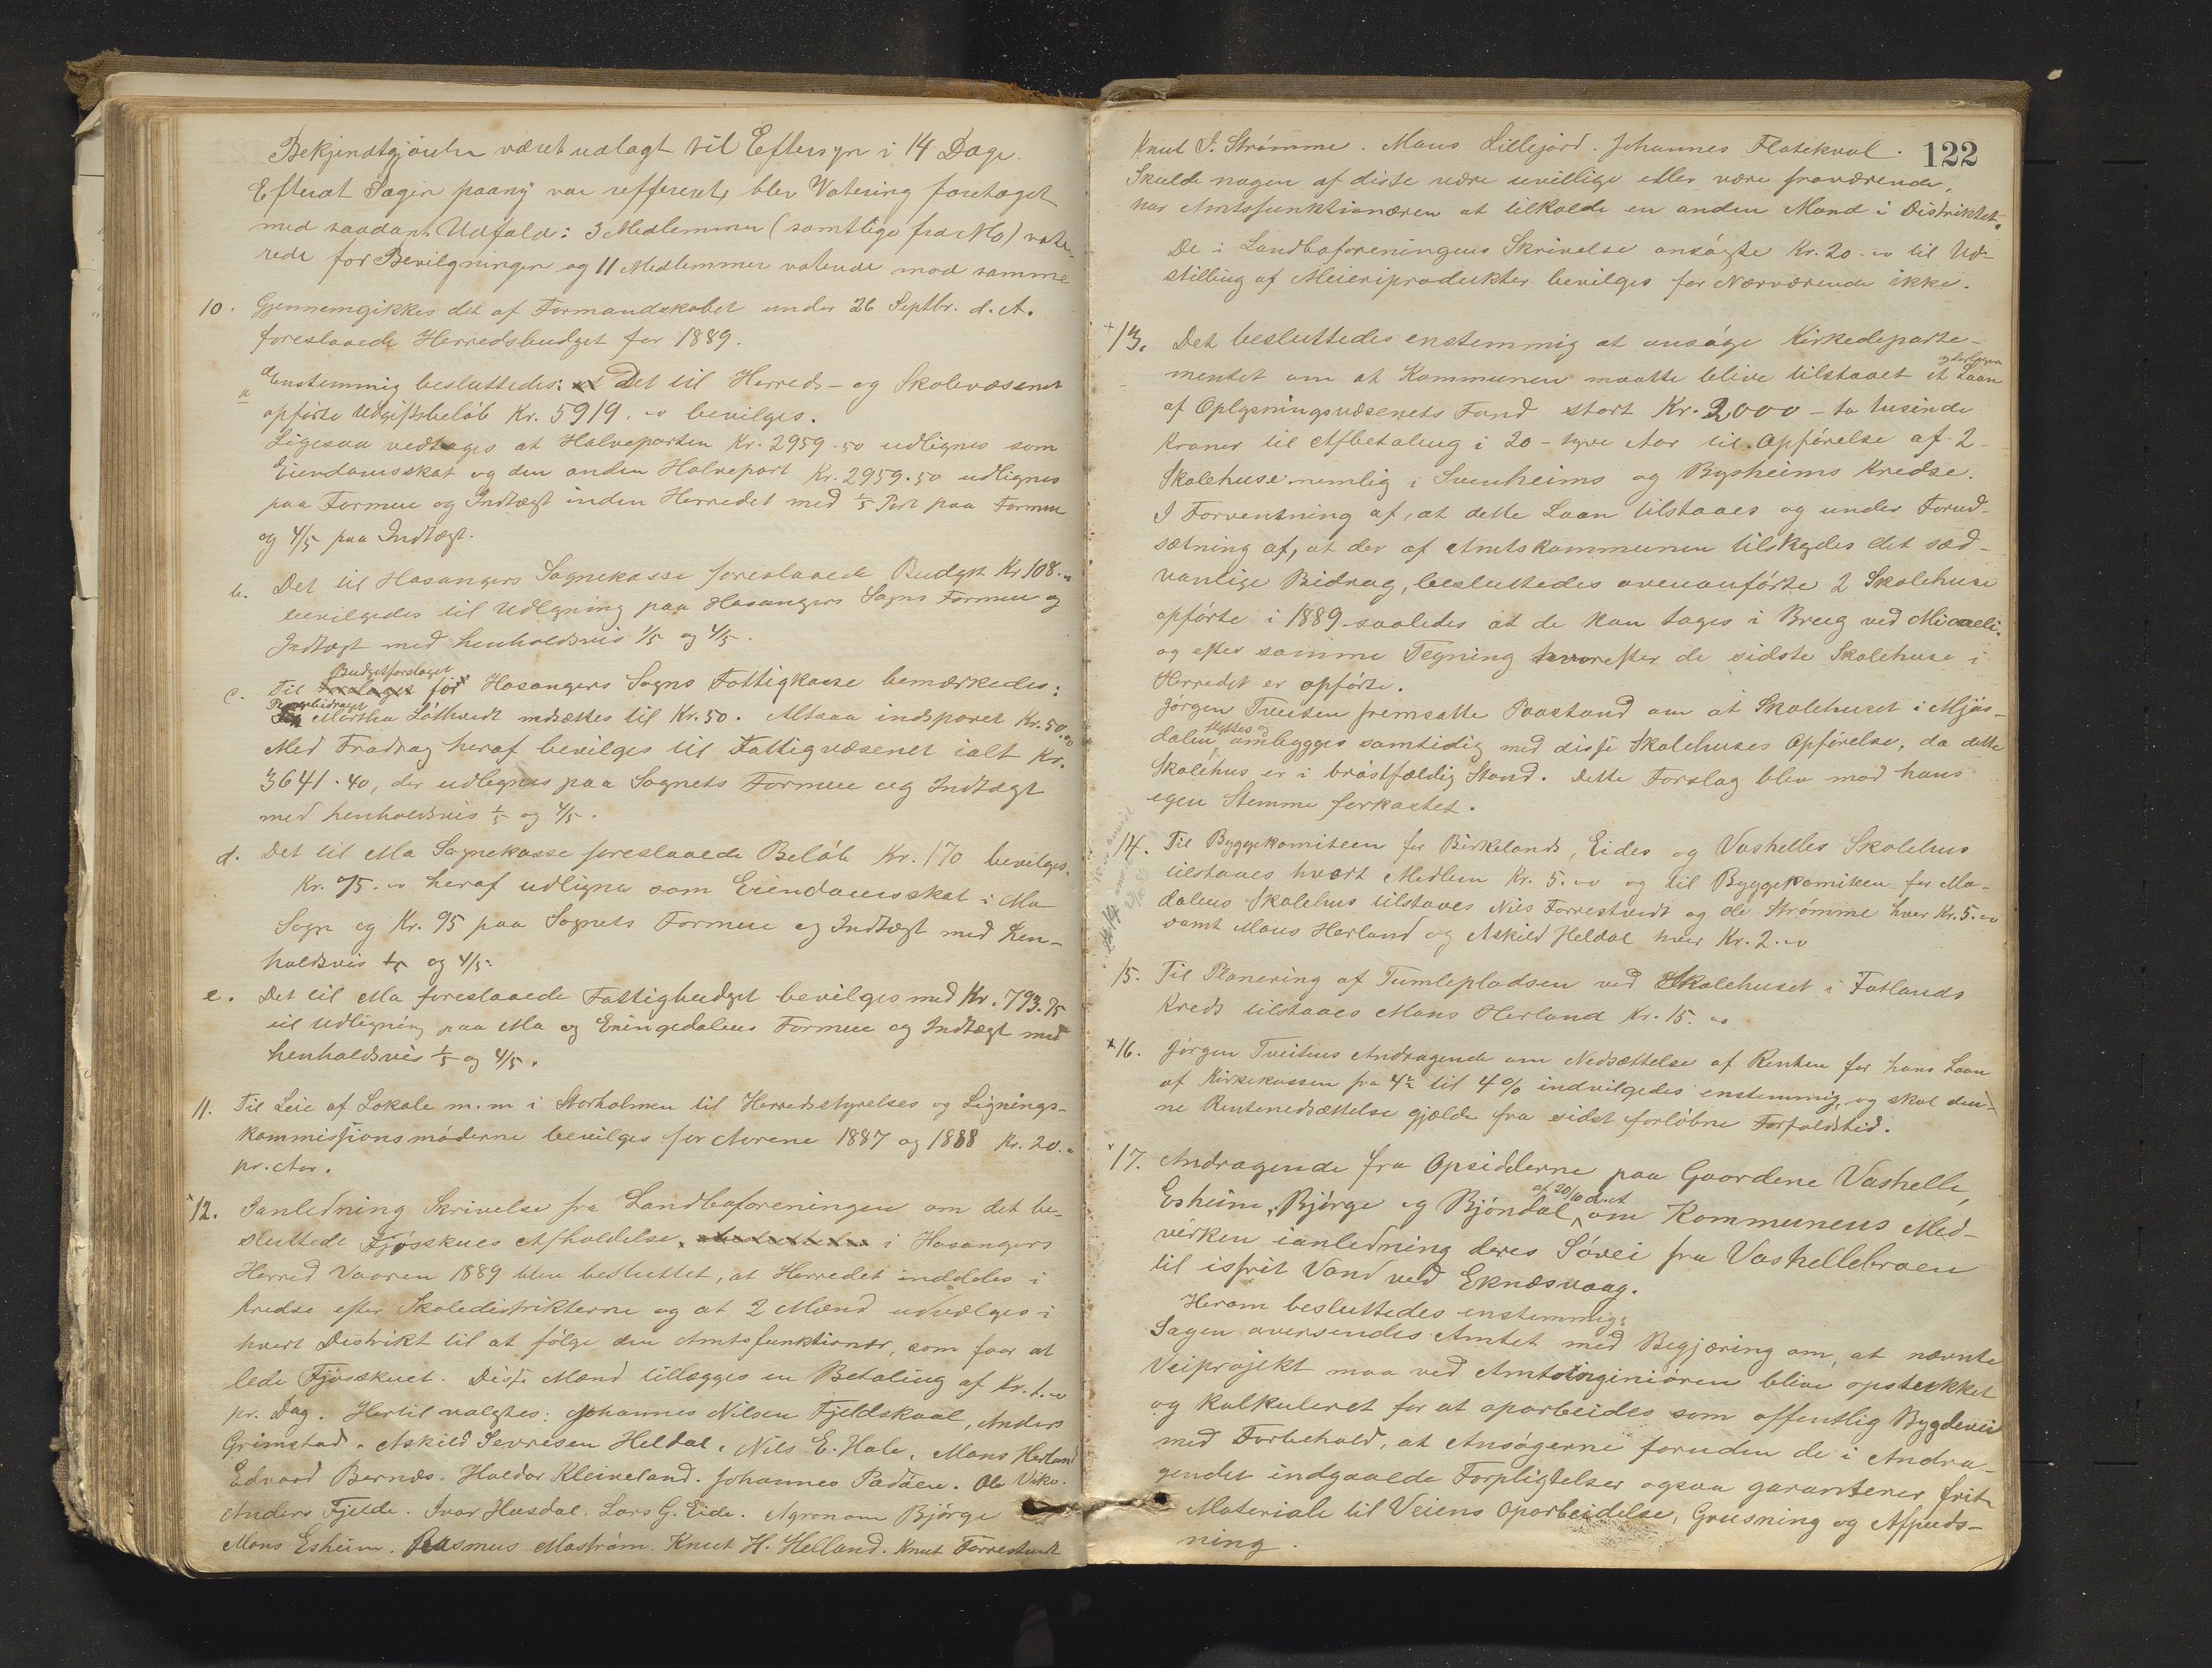 Bekjendtgjørelse været udlagt til Eftersyn i 14 Dage.
Efterat Sagen paany var refereret, blev Votering foretaget
med saadant Udfald: 3 Medlemmer (samtlige fra Mo) vote-
rede for Bevilgningen og 11 Medlemmer voterede mod samme
10. Gjennemgikkes det af Formandskabet under 26 Septbr. d. A.
foreslaaede Herredsbudget for 1889.
Enstemmig besluttedes:
a Det til Herreds- og Skolevæsenet
opførte Udgiftsbeløb Kr. 5919. " bevilges.
Ligesaa vedtages at Halveparten Kr. 2959.50 udlignes som
Eiendomsskat og den anden Halvepart Kr. 2959.50 udlignes
paa Formue og Indtægt inden Herredet med 1/5 Part paa Formue
og 4/5 paa Indtægt.
b. Det til Hosangers Sognekasse foreslaaede Budget Kr 108. "
bevilgedes til Udligning paa Hosangers Sogns Formue og
Indtægt med henholdsvis 1/5 og 4/5.
c. Til Budgetforslaget for Hosangers Sogns Fattigkasse bemærkedes:
Pengebidraget Martha Løthveit nedsættes til Kr. 50. Altsaa indsparet Kr. 50.00
Med Fradrag heraf bevilges til Fattigvæsenet ialt Kr.
3641.40, der udlignes paa Sognets Formue og Indtægt
med henholdsvis 1/5 og 4/5.
d. Det til Mo Sognekasse foreslaaede Beløb Kr. 170 bevilges.
Kr. 75. " heraf udlignes som Eiendomsskat i Mo
Sogn og Kr. 95 paa Sognets Formue og Indtægt med hen-
holdsvis 1/5 og 4/5.
e. Det til Mo foreslaaede Fattigbudget bevilges med Kr. 793.75
til Udligning paa Mo og Eningedalens Formue og Indtægt med
henholdsvis 1/5 og 4/5.
11. Til Leie af Lokale m. m i Storholmen til Herredsstyrelses og Lignings-
kommissionsmøderne bevilges for Aarene 1887 og 1888 Kr. 20. "
pr. Aar.
+12. Ianledning Skrivelse fra Landboforeningen om det be-
sluttede Fjøsskues Afholdelse i Hosangers
Herred Vaaren 1889 blev besluttet, at Herredet inddeles i
Kredse efter Skoledistrikterne og at 2 Mænd udvælges i
hvert Distrikt til at følge den Amtsfunktionær, som faar at
lede Fjøsskuet. Disse Mænd tillægges en Betaling af Kr. 1. "
pr. Dag. Hertil valgtes: Johannes Nilsen Fjeldskaal, Anders
Grimstad. Askild Sevresen Heldal, Nils E. Hole, Mons Herland
Edvard Bernæs. Haldor Kleiveland. Johannes Padden. Ole Viko.
Anders Fjelde. Ivar Husdal. Lars G. Eide. Agronom Bjørge
Mons Esheim. Rasmus Mostrøm. Knut H. Helland. Knut Forrestveit
122
Knut I. Strømme. Mons Lillejord. Johannes Flatekval.
Skulde nogen af disse være uvillige eller være fraværende,
har Amtsfunktionæren at tilkalde en anden Mand i Distriktet.
De i Landboforeningens Skrivelse ansøgte Kr. 20. " til Ud-
stilling af Meieriprodukter bevilges for Nærværende ikke.
+13. Det besluttedes enstemmig at ansøge Kirkedeparte-
mentet om at Kommunen maatte blive tilstaaet et yderligere Laan
af Oplysningsvæsenets Fond stort Kr. 2000 - to tusinde
Kroner til Afbetaling i 20 - tyve Aar til Opførelse af 2
Skolehuse nemlig i Svenheims og Bysheims Kredse.
I Forventning af, at dette Laan tilstaaes og under Forud-
sætning af, at der af Amtskommunen tilskydes det sæd-
vanlige Bidrag, besluttedes ovenanførte 2 Skolehuse
opførte i 1889 saaledes at de kan tages i Brug ved Micaeli.
og efter samme Tegning hvorefter de sidste Skolehuse i
Herredet er opførte.
Jørgen Tveiten fremsatte Paastand om at Skolehuset i Mjøs-
dalen flyttes og ombygges samtidig med disse Skolehuses Opførelse, da dette
Skolehus er i brøstfældig Stand. Dette Forslag blev mod hans
egen Stemme forkastet.
14. Til Byggekomiteen for Birkelands, Eides og Vashelles Skolehus
tilstaaes hvert Medlem Kr. 5. " og til Byggekomiteen for Mo-
dalens Skolehus tilstaaes Nils Forrestveit og Ole Strømme hver Kr. 5. "
samt Mons Herland og Askild Heldal hver Kr. 2. "
15. Til Planering af Tumlepladsen ved Skolehuset i Fotlands
Kreds tilstaaes Mons Herland Kr. 15. "
+16. Jørgen Tveitens Andragende om Nedsættelse af Renten for hans Laan
af Kirkekassen fra 4½ til 4% indvilgedes enstemmig og skal den-
ne Rentenedsættelse gjælde fra sidst forløbne Forfaldstid.
+17. Andragende fra Opsidderne paa Gaardene Vashelle,
Esheim, Bjørge og Bjøndal, af 20/10 d. A om Kommunens Med-
virken ianledning deres Søvei fra Vashellebroen
til isfrit Vand ved Eknæsvaag.
Herom besluttedes enstemmig:
Sagen oversendes Amtet med Begjæring om, at nævnte
Veiprojekt maa ved Amtsinginiøren blive opstukket
og kalkuleret for at oparbeides som offentlig Bygdevei
med Forbehold, at Ansøgerne foruden de i Andra-
gendet indgaaede Forpligtelser ogsaa garanterer frit
Materiale til Veiens Oparbeidelse, Grusning og Afpuds-
ning.